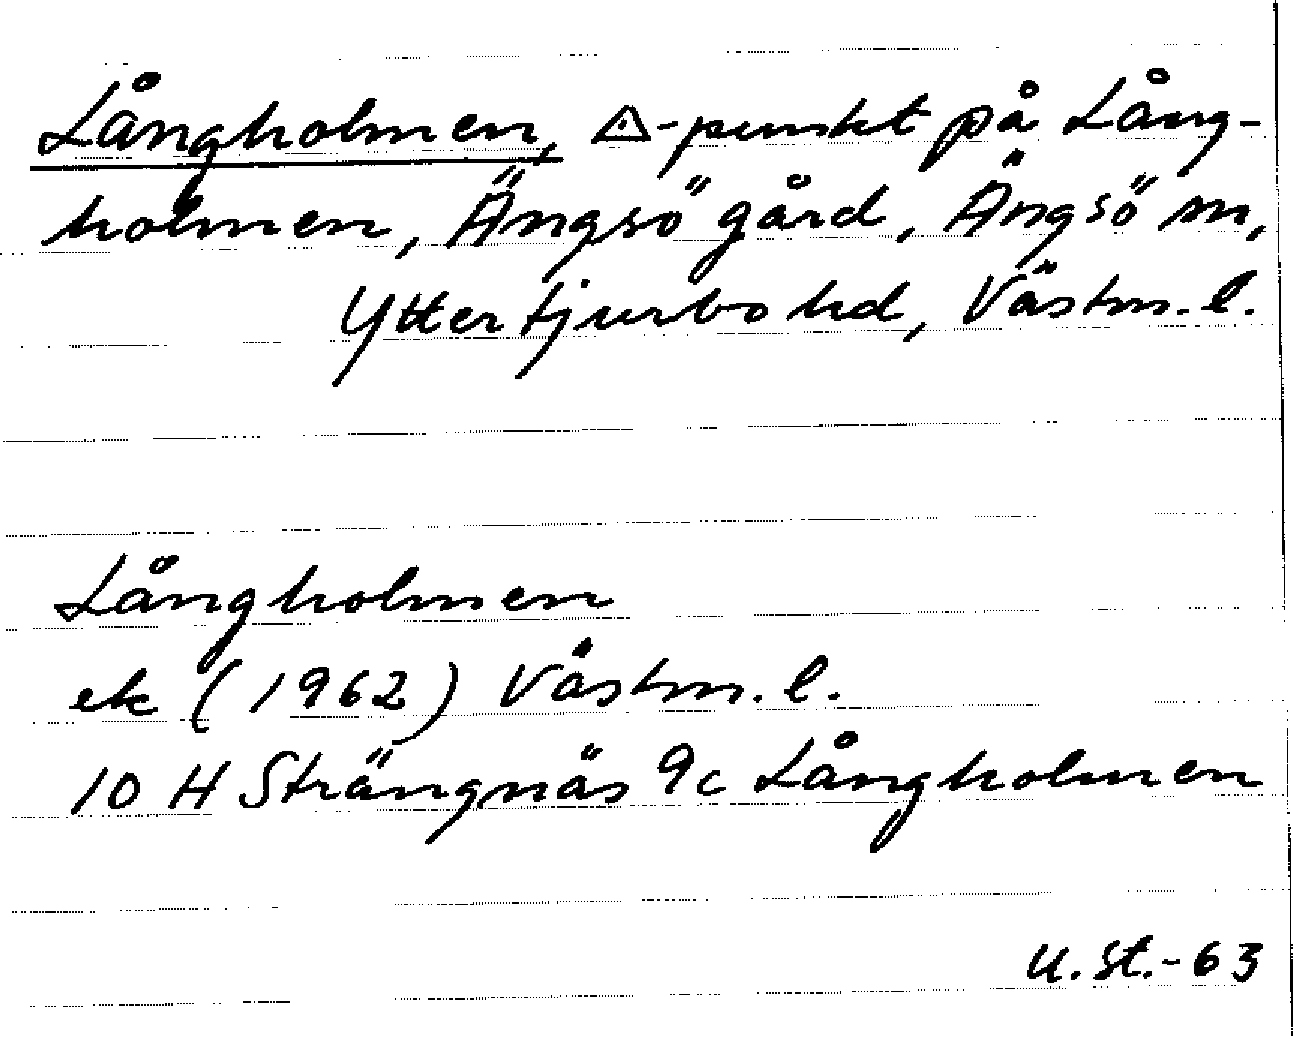 Långholmen, ⟁-punkt på Lång-
holmen, Ängsö gård, Ängsö sn,
Yttertjurbo hd, Västm. l.
Långholmen
ek (1962) Västm. l.
10 H Strängnäs 9c Långholmen
U. St.-63